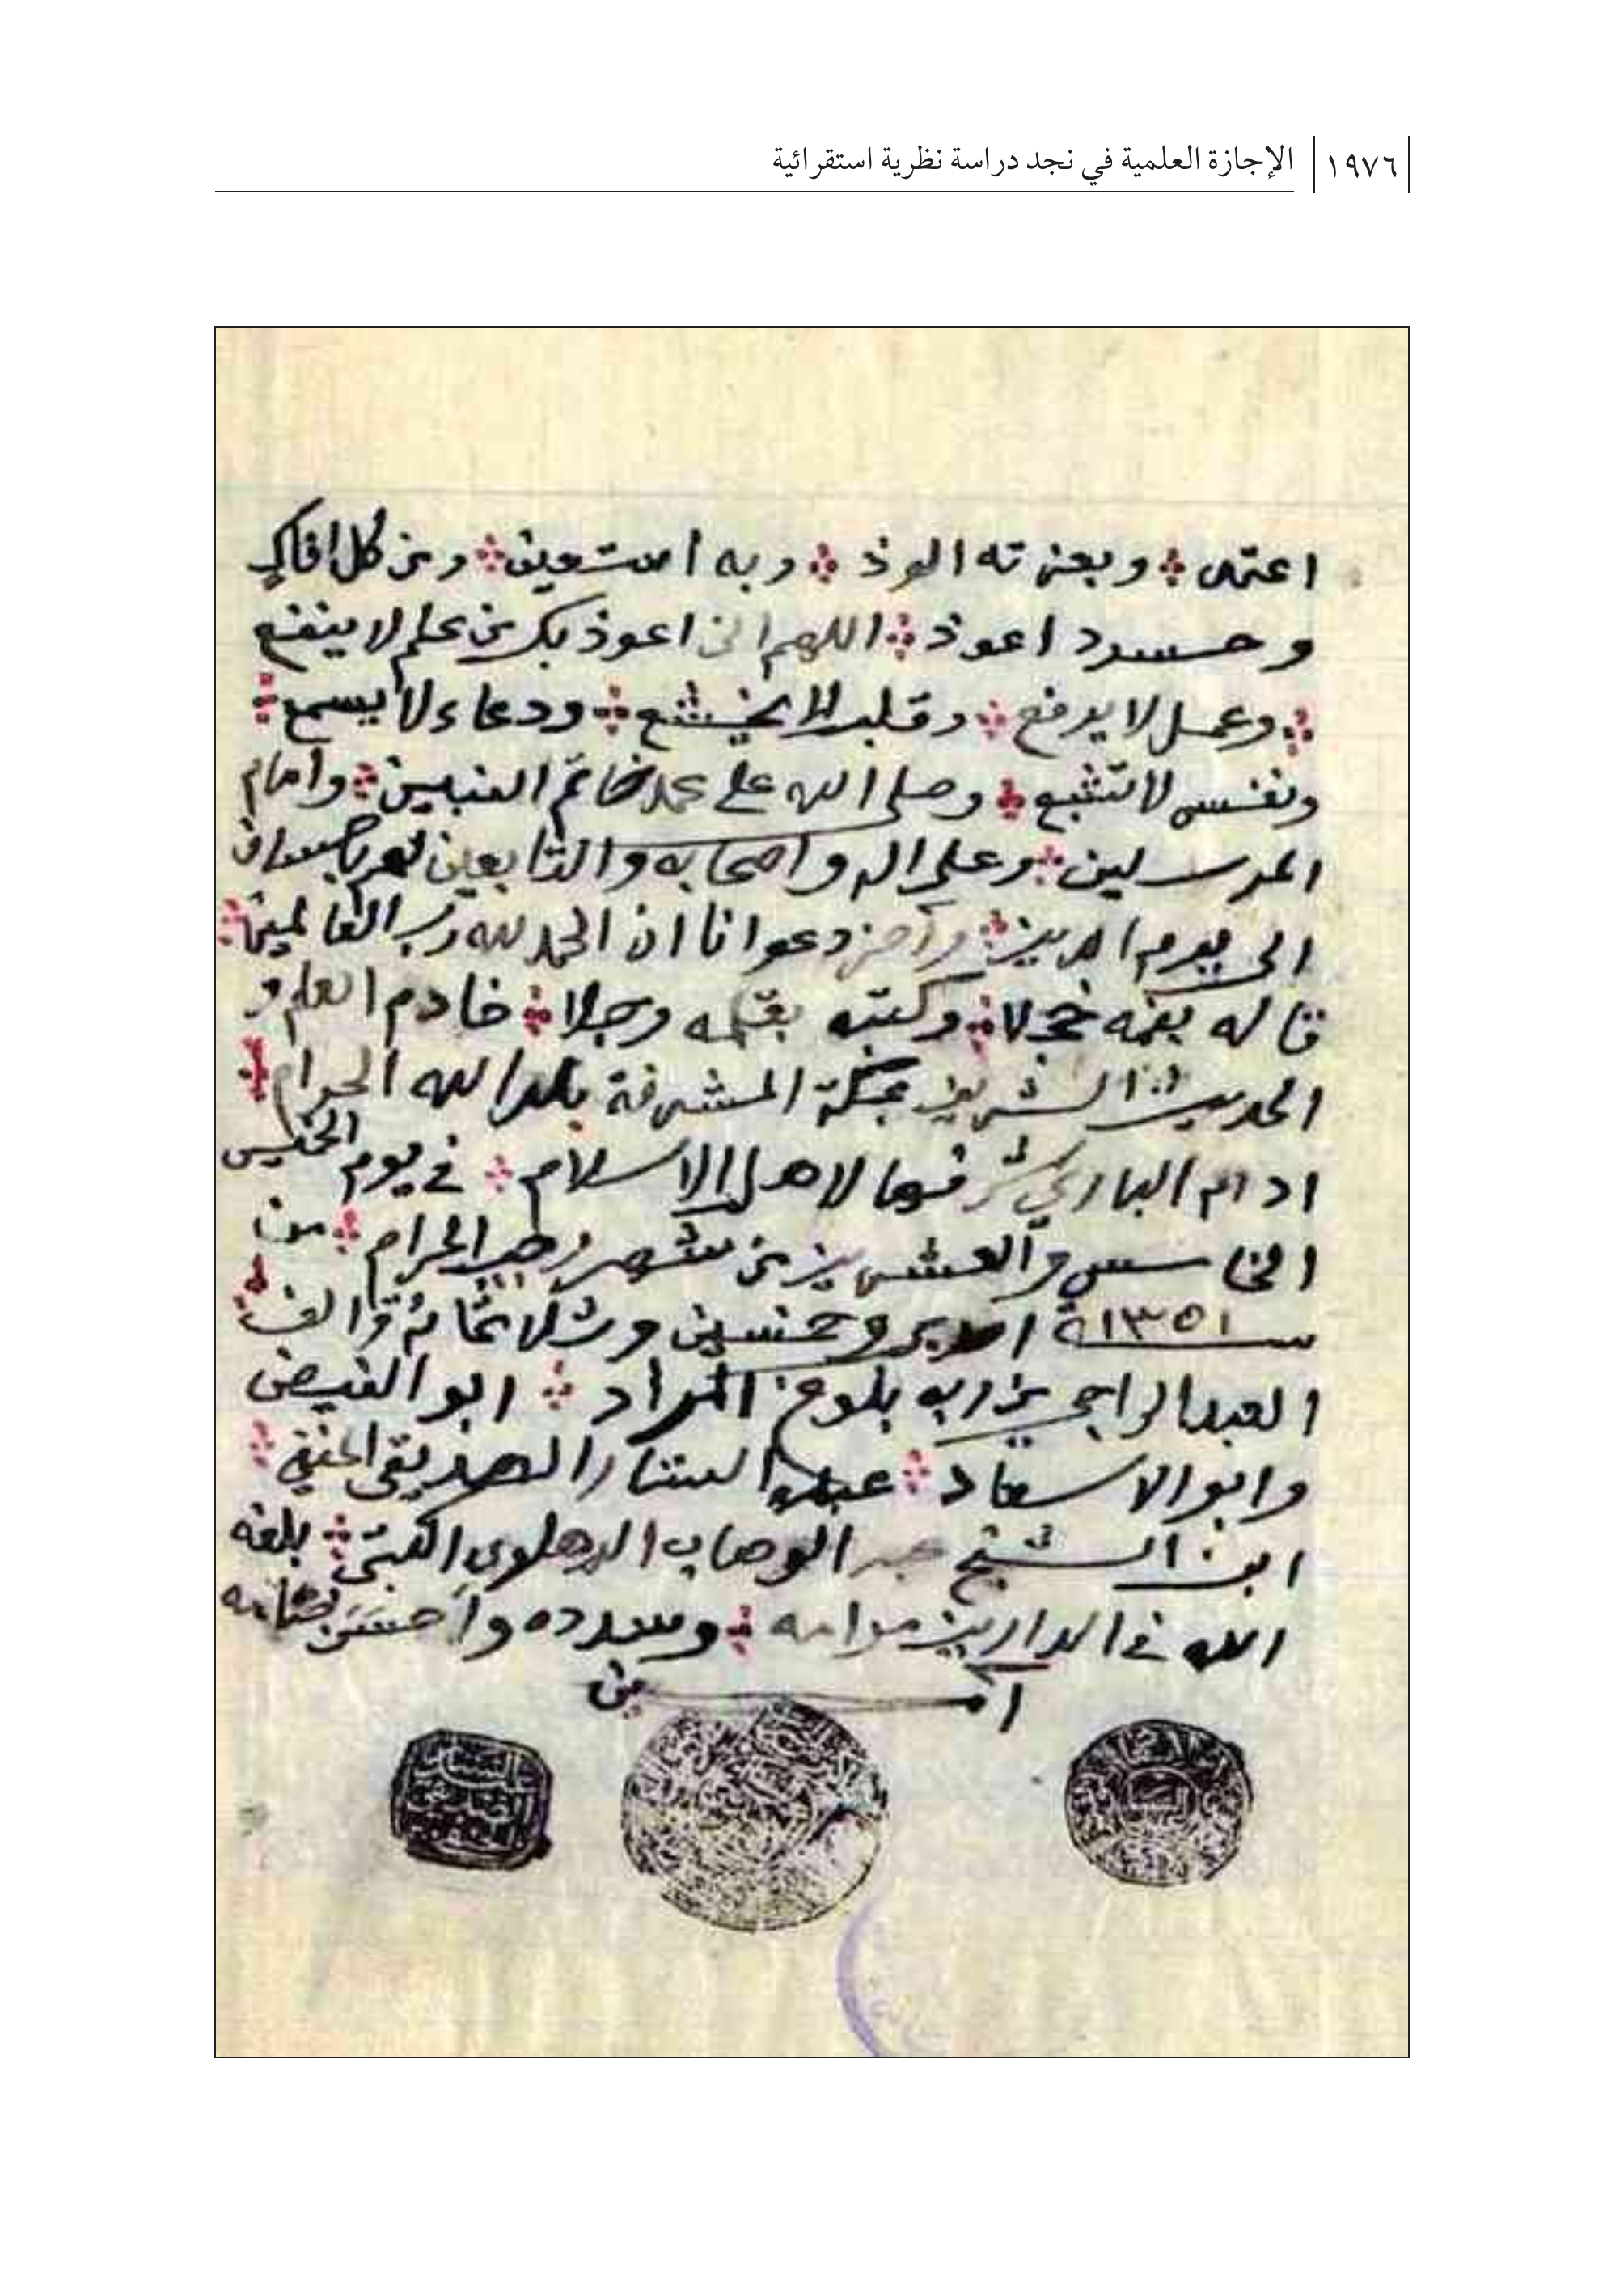 ١٩٧٦ الإجازة العلمية في نجد دراسة نظرية استقرائية
اعتمد وبعزته الوذ وبه استعين ومن كل افاك
وحسود اعوذ اللهم اني اعوذ بك من علم لا ينفع
وعمل لا يرفع وقلب لا يخشع ودعاء لا يسمع
ونفس لا تشبع وصلى الله على محمد خاتم النبيين وامام
المرسلين وعلى اله واصحابه والتابعين لهم باحسان
الى يوم الدين وآخر دعوانا ان الحمد لله رب العالمين
قاله بفمه خجلا وكتبه بقلمه وجلا خادم العلم و
الحديث الشريف بمكة المشرفة بلد الله الحرام
ادام الباري شرفها لاهل الاسلام في يوم الخميس
الخامس والعشرين من شهر رجب الحرام من
سنة ١٣٥١ احدى وخمسين وثلاثمائة والف
العبد الراجي من ربه بلوغ المراد ابو الفيض
وابو الاسعاد عبد الستار الصديقي الحنفي
ابن الشيخ عبد الوهاب الدهلوي الكتبي بلغه
الله في الدارين مرامه وسدده واحسن ختامه
آمين